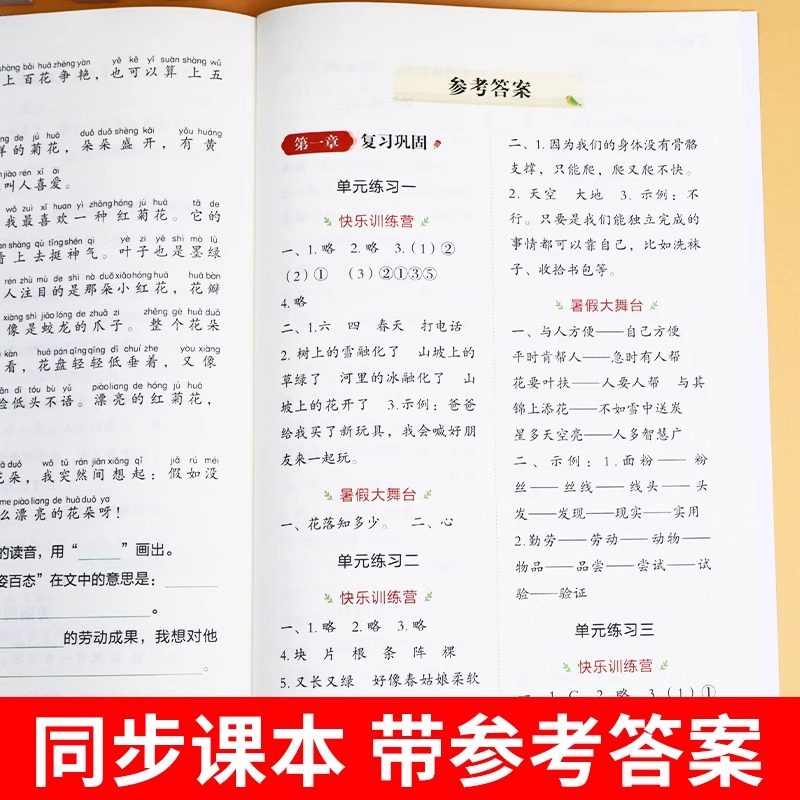 shàng bǎi huā zhēng yàn yě kě yǐ suàn shàng wǔ
上百花争艳，也可以算上五
yàng de jú huā duǒ duǒ shèng kāi yǒu huáng
样的菊花，朵朵盛开，有黄
jiào rén xǐ ài
叫人喜爱。
wǒ zuì xǐ huan yì zhǒng hóng jú huā tā de
我最喜欢一种红菊花。它的
shàng qù tǐng shén qì yè zi yě shì mò lǜ
上去挺神气。叶子也是墨绿
rén zhù mù de shì nà duǒ xiǎo hóng huā huā bàn
人注目的是那朵小红花，花瓣
xiàng shì jiāo lóng de zhuǎ zi zhěng gè huā duǒ
像是蛟龙的爪子。整个花朵
kàn huā pán qīng qīng dī chuí zhe yòu xiàng
看，花盘轻轻低垂着，又像
dī tóu bù yǔ piào liang de hóng jú huā
脸低头不语。漂亮的红菊花，
huā duǒ wǒ tū rán jiān xiǎng qǐ jiǎ rú méi
花朵，我突然间想起：假如没
me piào liang de huā duǒ ya
么漂亮的花朵呀！
的读音，用“______”画出。
姿百态”在文中的意思是：
。
的劳动成果，我想对他
。
参考答案
第一章 复习巩固
单元练习一
快乐训练营
一、1.略 2.略 3.（1）②
（2）① （3）②①③⑤
4.略
二、1.六 四 春天 打电话
2.树上的雪融化了 山坡上的
草绿了 河里的冰融化了 山
坡上的花开了 3.示例：爸爸
给我买了新玩具，我会喊好朋
友来一起玩。
暑假大舞台
一、花落知多少。 二、心
单元练习二
快乐训练营
一、1.略 2.略 3.略
4.块 片 根 条 阵 棵
5.又长又绿 好像春姑娘柔软
二、1.因为我们的身体没有骨骼
支撑，只能爬，爬又爬不快。
2.天空 大地 3.示例：不
行。只要是我们能独立完成的
事情都可以靠自己，比如洗袜
子、收拾书包等。
暑假大舞台
一、与人方便——自己方便
平时肯帮人——急时有人帮
花要叶扶——人要人帮 与其
锦上添花——不如雪中送炭
星多天空亮——人多智慧广
二、示例：1.面粉——粉
丝——丝线——线头——头
发——发现——现实——实用
2.勤劳——劳动——动物——
物品——品尝——尝试——试
验——验证
单元练习三
快乐训练营
一、1.C 2.略 3.（1）①
同步课本 带参考答案